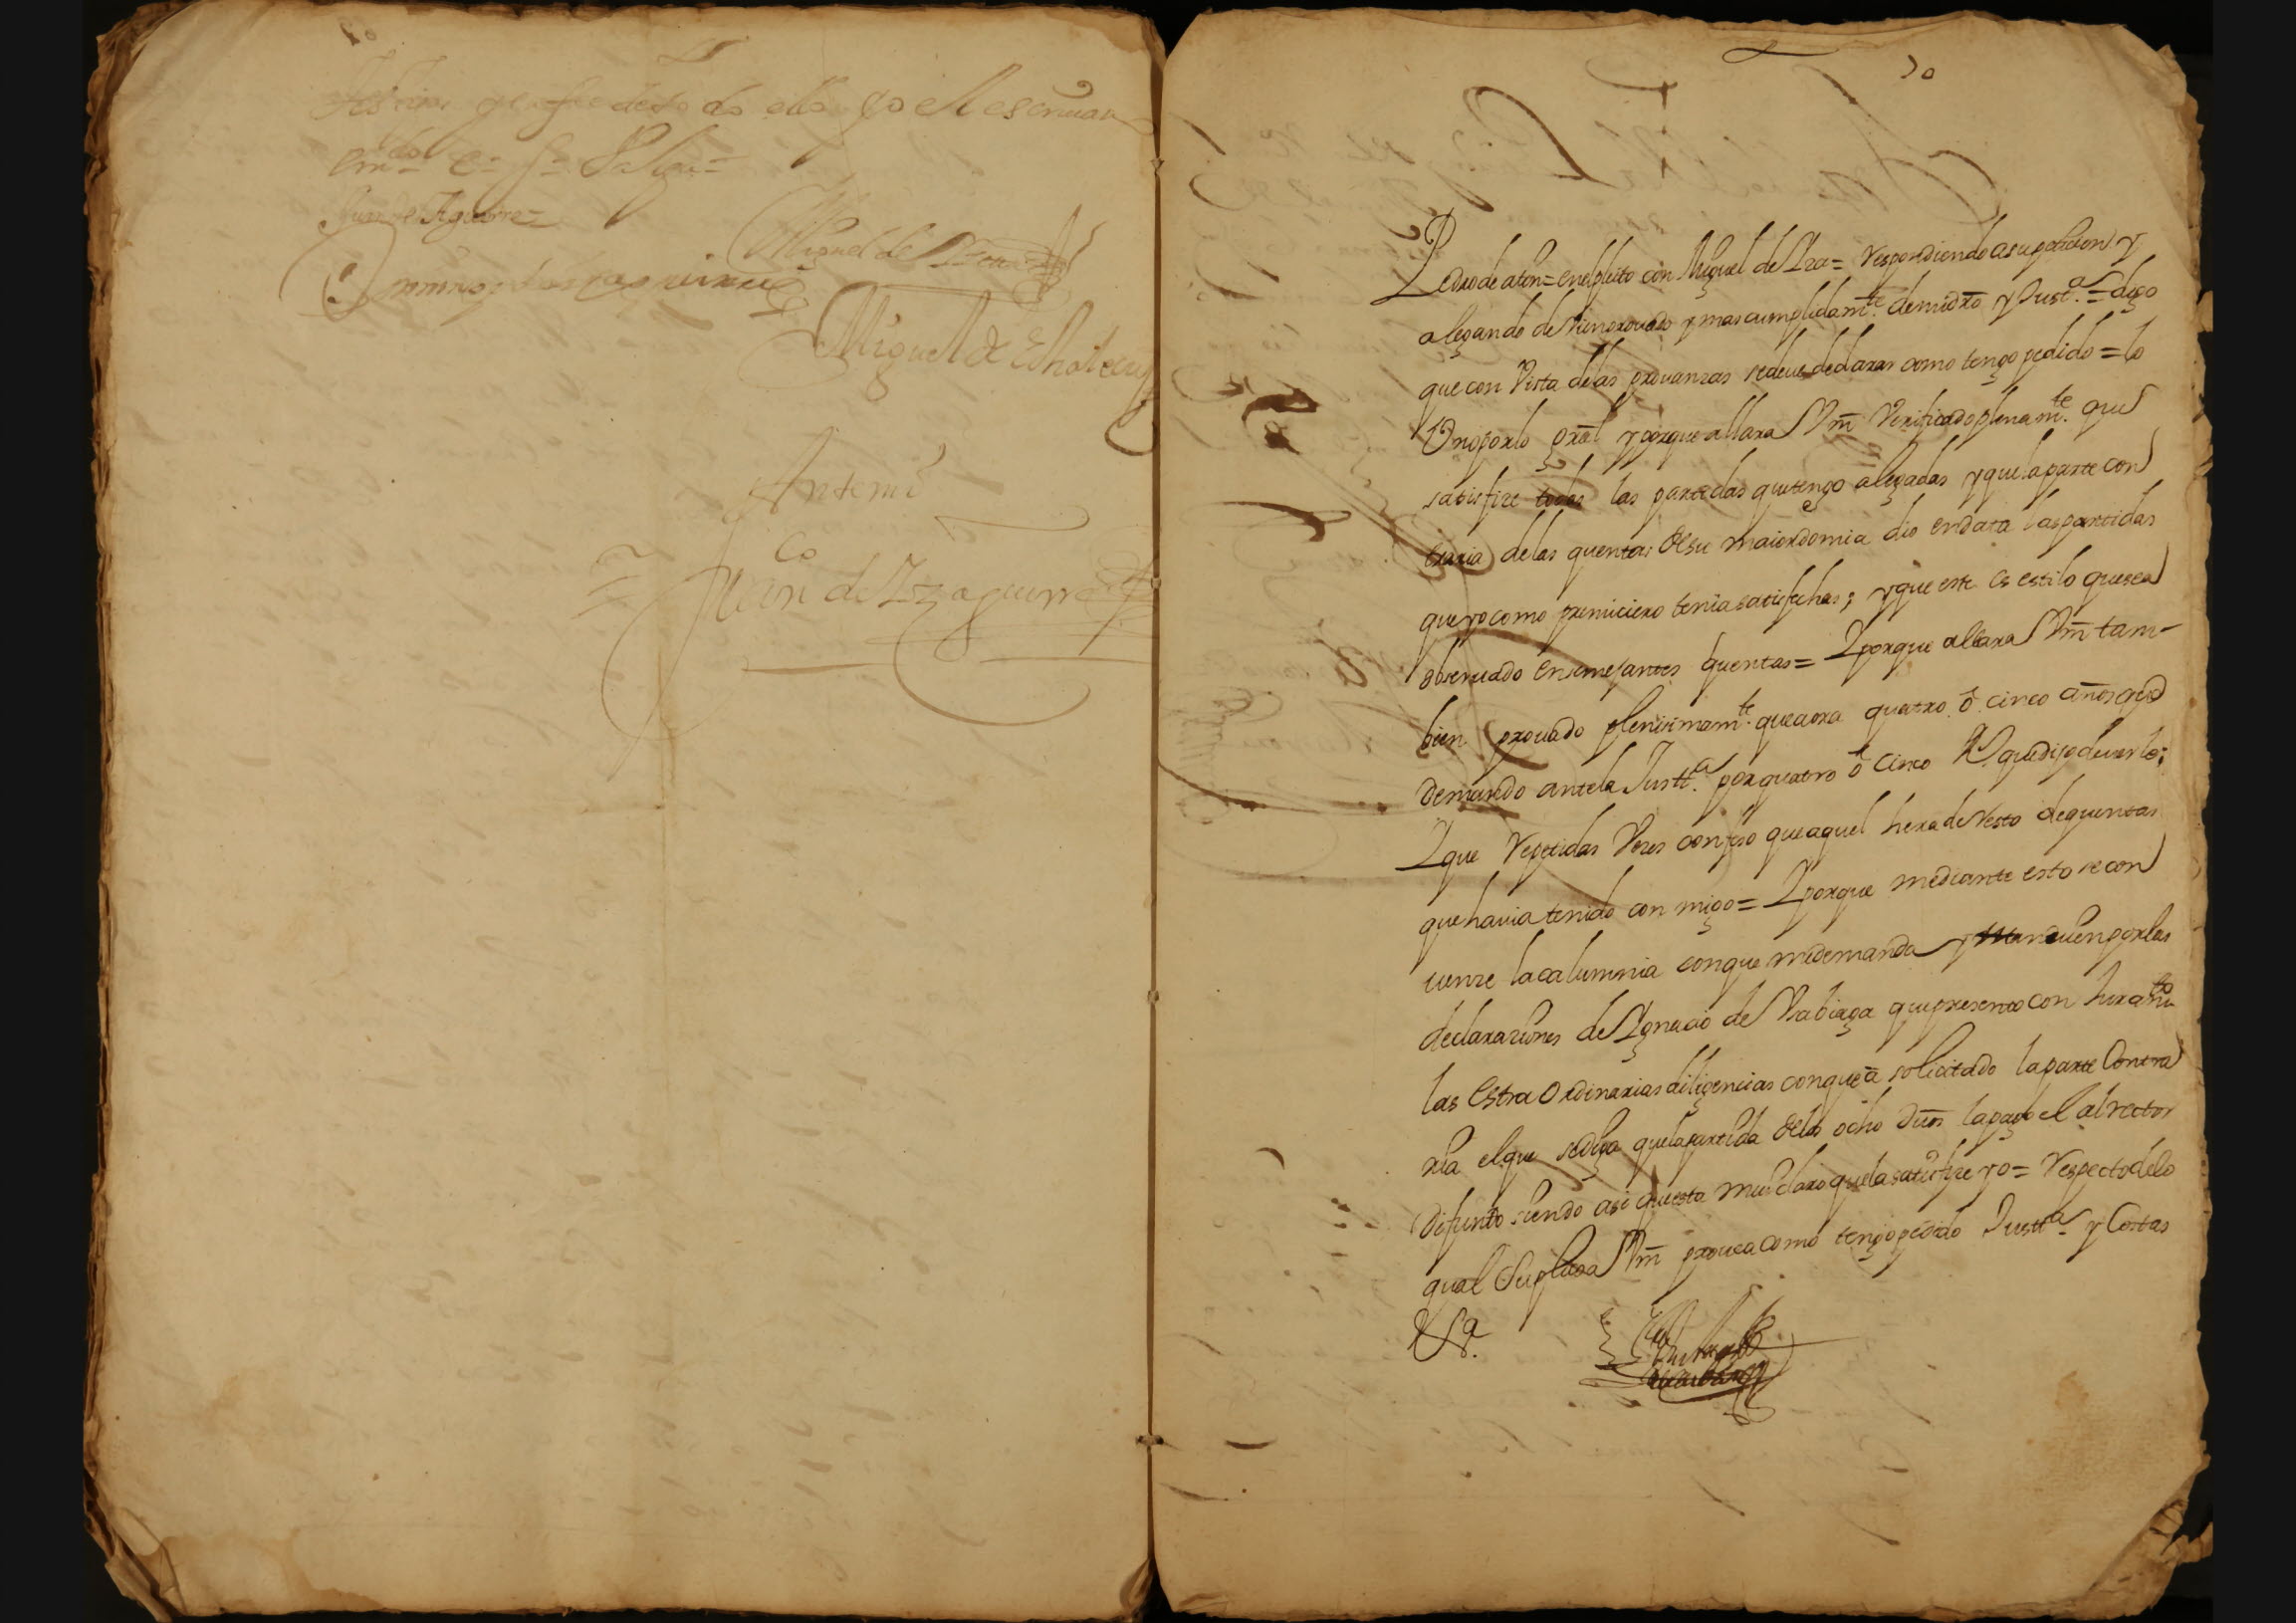 yo el escriuano
em.do
Juan de Aguirre
Miguel de
Miguel de
Antemi
Juan de Yzaguirre
70
Pedro de aton = en el pleito con Miguel de Yza = respondiendo a su peticion y
alegando de vien prouado y mas cumplidam.te de mi dro y Just.a = digo
que con Vista de las prouanzas se deue declarar como tengo pedido = lo
Uno por lo gral y porque allara Vm Verificado plenam.te que
satisfize todas las partidas que tengo alegadas y que la parte con
traria de las quentas de su maiordomia dio en data las partidas
que yo como primiciero tenia satisfechas; y que este es estilo que sea
obseruado en semejantes quentas = Y porque allara Vm tam-
bien prouado plenisimam.te que aora quatro ô cinco años que
demando ante la Justt.a por quatro ô cinco Rs que dijo deuerle;
Y que repetidas Vezes confeso que aquel hera de resto de quentas
que hauia tenido con migo = Y porque mediante esto se con
uenze la calumnia con que me demanda y se ven por las
declaraziones de Ygnacio de Vsabiaga que presento con Juram.to
las estra Ordinarias diligencias con que â solicitado la parte Contra
ria el que se diga que la partida de los ocho dus la pago el al rector
difunto siendo asi questa mui claro que la satisfize yo = Respecto de lo
qual Suplico a Vm prouea como tengo pedido Justt.a y Costas
&a.